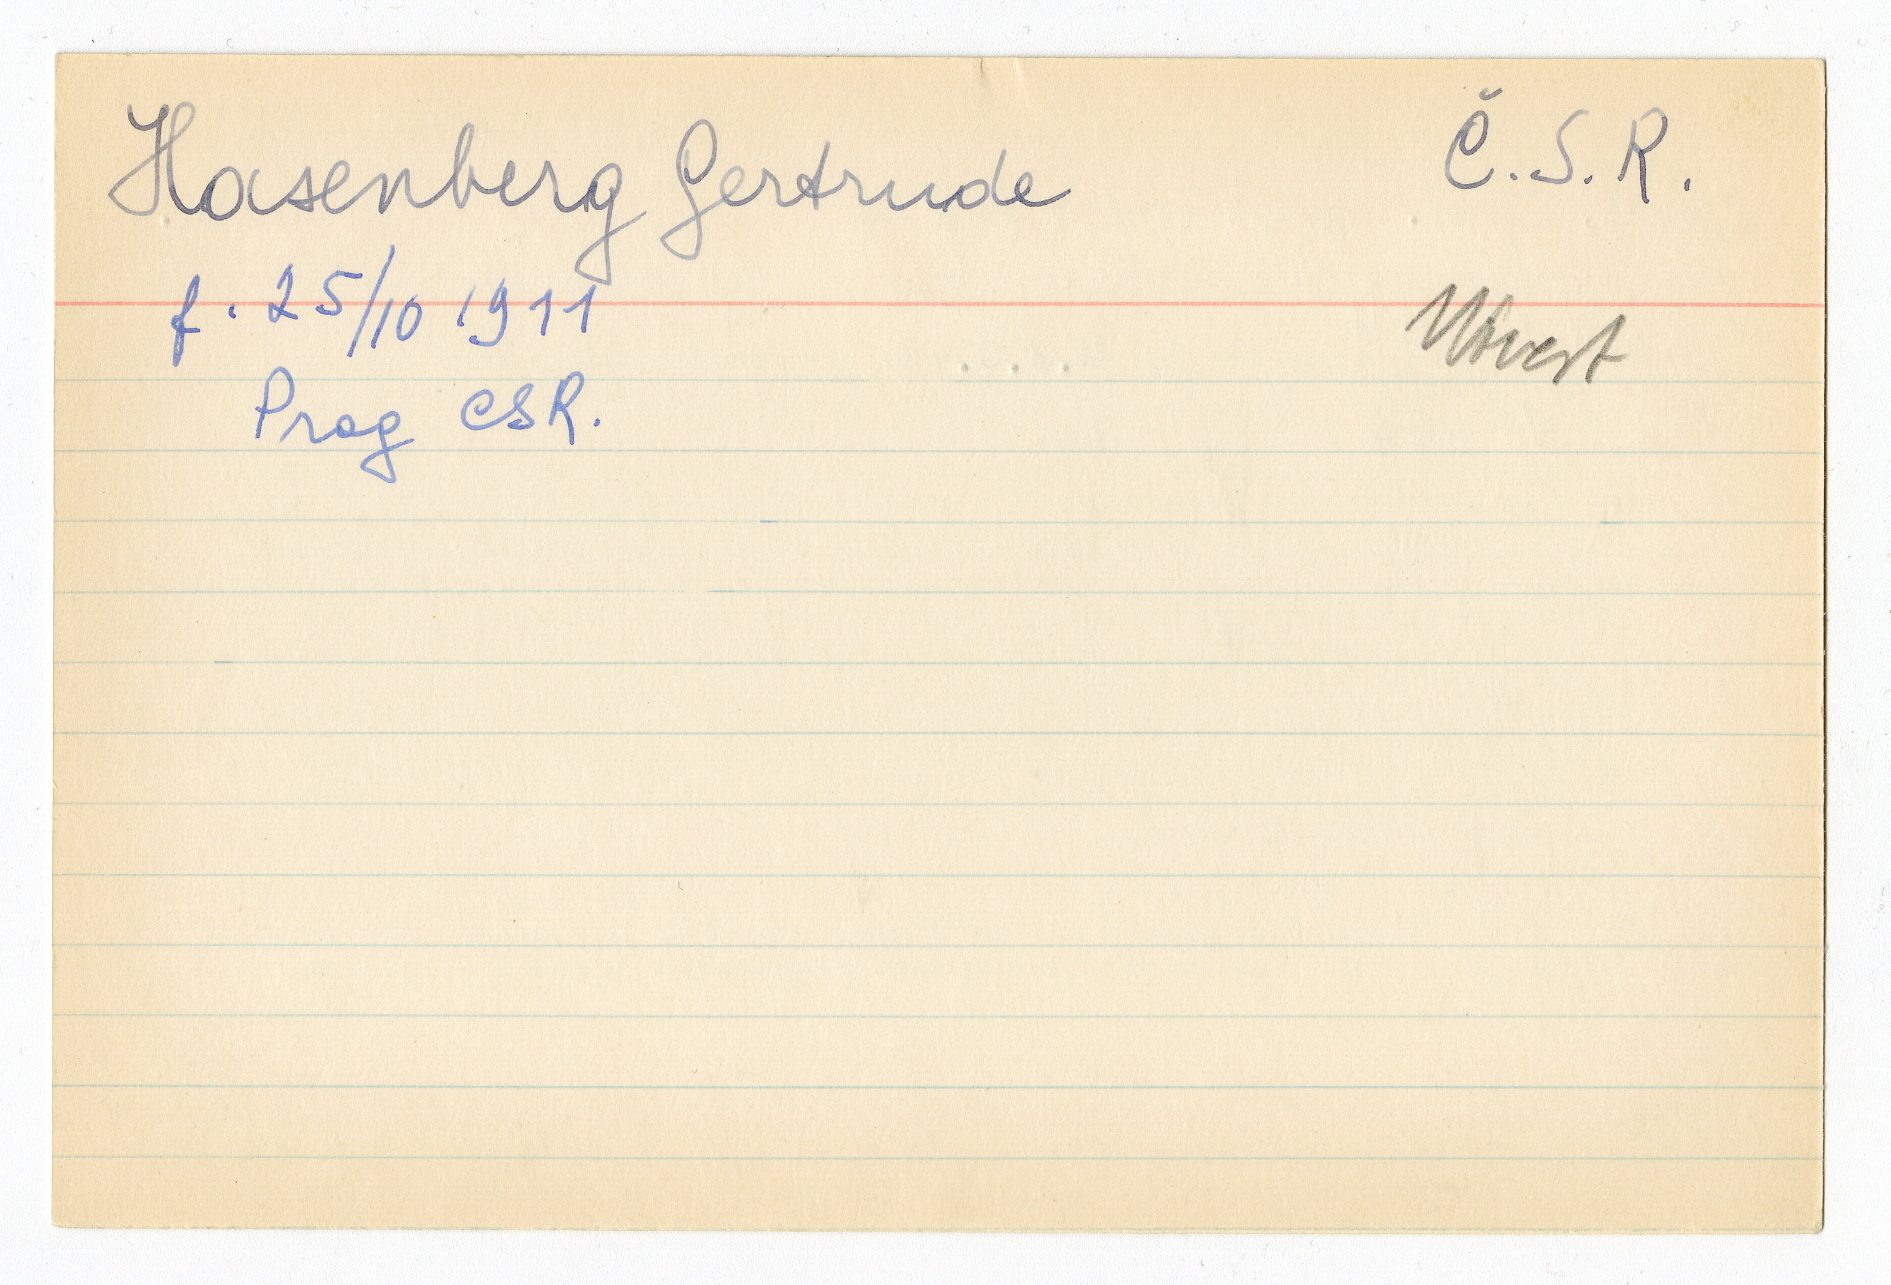 Hasenberg Gertrude Č.S.R.
f. 25/10 1911
Prag CSR.